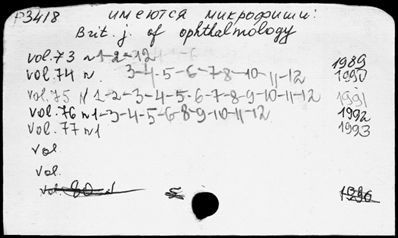 P3418 имеются микрофиши:
Brit. j. of ophtlalmology
vol.73 N1-2-12 1989
vol.74 N. 3-4-5-6-7-8-10-11-12 1990
vol.75 N1-2-3-4-5-6-7-8-9-10-11-12 1991
vol.76 N1-3-4-5-6-8-9-10-11-12 1992
vol.77 N1 1993
vol
vol.
vol. 80